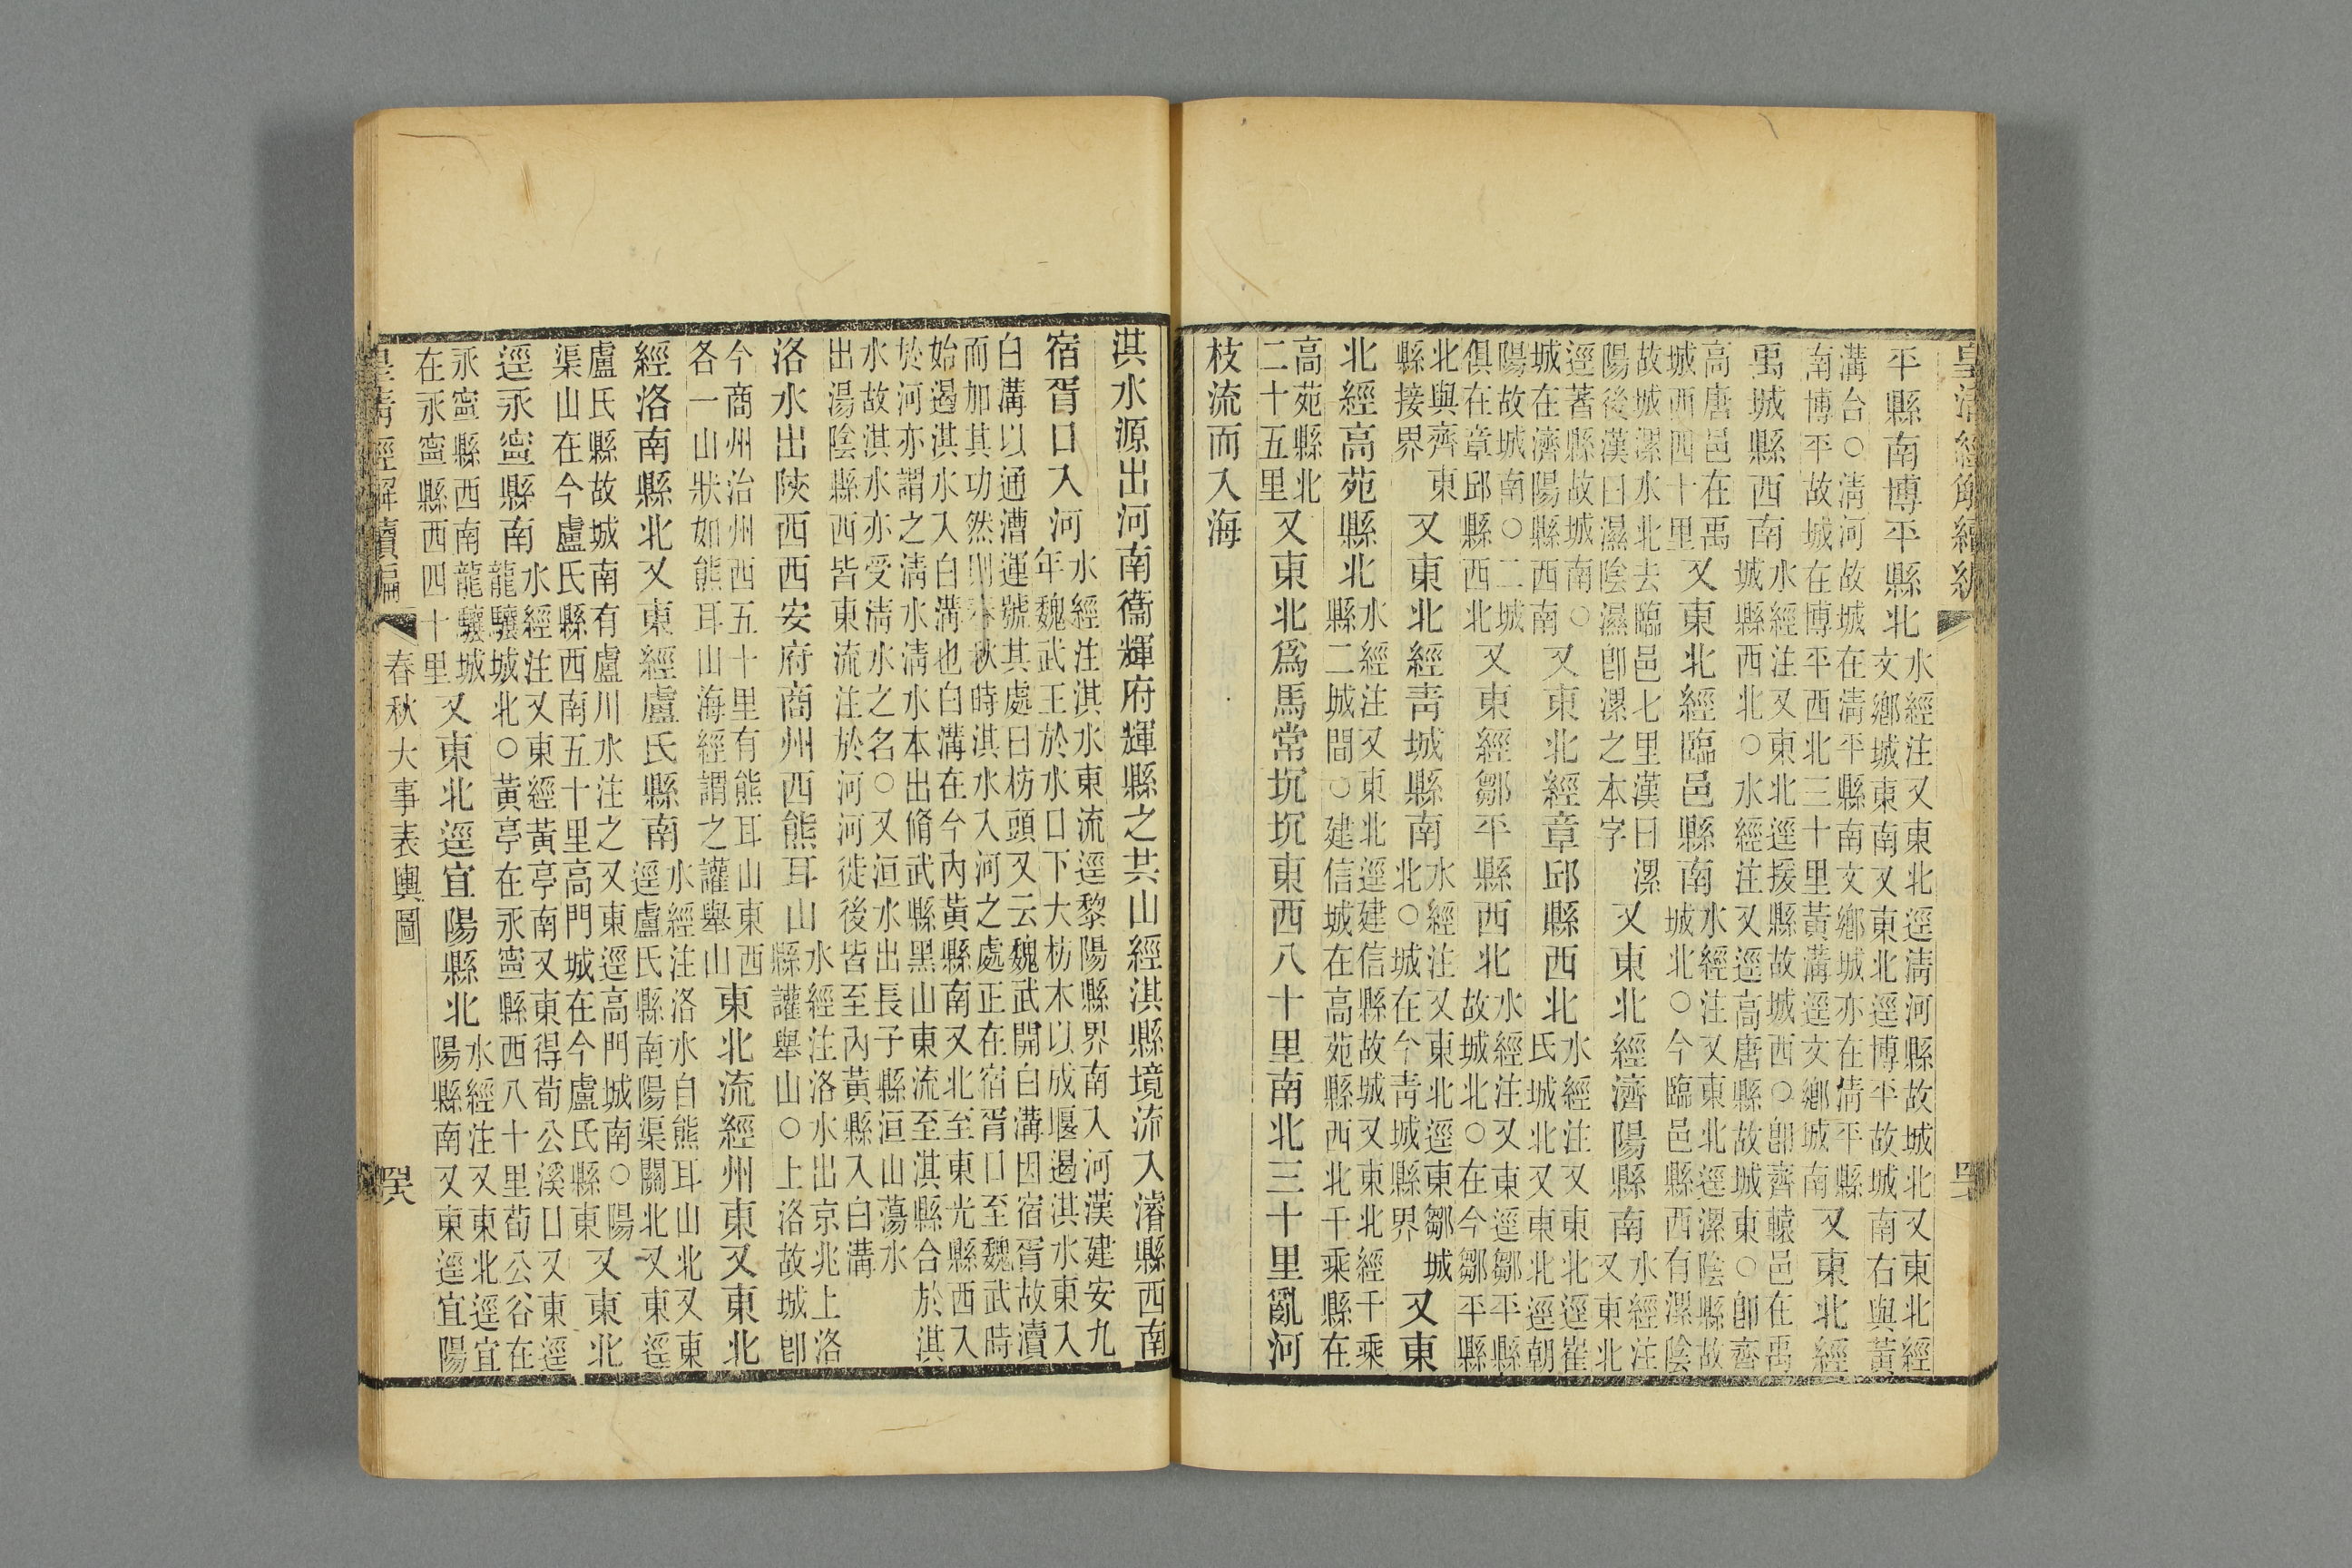 皇清經解續編
平縣南博平縣北水經注又東北逕清河縣故城北又東北經文鄉城東南又東北逕博平故城南右與黃
溝台○清河故城在清平縣南文鄉城亦在清平縣南博平故城在博平西北三十里黃溝逕文鄉城南又東北經
禹城縣西南水經注又東北逕援縣故城西○卽齊轅邑在禹城縣西北○水經注又逕高唐縣故城東○卽齊
高唐邑在禹城西四十里又東北經臨邑縣南水經注又東北逕漯陰縣故城北○今臨邑縣西有漯陰
故城漯水北去臨邑七里漢曰漯陽後漢曰濕陰濕卽漯之本字又東北經濟陽縣南水經注又東北
逕著縣故城南○城在濟陽縣西南又東北經章邱縣西北水經注又東北逕崔氏城北又東北逕朝
陽故城南○二城俱在章邱縣西北又東經鄒平縣西北水經注又東逕鄒平縣故城北○在今鄒平縣
北與齊東縣接界又東北經青城縣南水經注又東北逕東鄒城北○城在今青城縣界又東
北經高苑縣北水經注又東北逕建信縣故城又東北經千乘縣二城間○建信城在高苑縣西北千乘縣在
高苑縣北二十五里又東北爲馬常坈坈東西八十里南北三十里亂河
枝流而入海
淇水源出河南衞輝府輝縣之共山經淇縣境流入濬縣西南
宿胥口入河水經注淇水東流逕黎陽縣界南入河漢建安九年魏武王於水口下大枋木以成堰遏淇水東入
白溝以通漕運號其處曰枋頭又云魏武開白溝因宿胥故瀆而加其功然則春秋時淇水入河之處正在宿胥口至魏武時
始遏淇水入白溝也白溝在今內黃縣南又北至東光縣西入於河亦謂之清水清水本出脩武縣黑山東流至淇縣合於淇
水故淇水亦受清水之名○又洹水出長子縣洹山蕩水出湯陰縣西皆東流注於河河徙後皆至內黃縣入白溝
洛水出陝西西安府商州西熊耳山水經注洛水出京兆上洛縣讙舉山○上洛故城卽
今商州治州西五十里有熊耳山東西各一山狀如熊耳山海經謂之讙舉山東北流經州東又東北
經洛南縣北又東經盧氏縣南水經注洛水自熊耳山北又東逕盧氏縣南陽渠關北又東逕
盧氏縣故城南有盧川水注之又東逕高門城南○陽渠山在今盧氏縣西南五十里高門城在今盧氏縣東又東北
逕永寧縣南水經注又東經黃亭南又東得荀公溪口又東逕龍驤城北○黃亭在永寧縣西八十里荀公谷在
永寧縣西南龍驤城在永寧縣西四十里又東北逕宜陽縣北水經注又東北逕宜陽縣南又東逕宜陽
皇清經解續編
春秋大事表輿圖